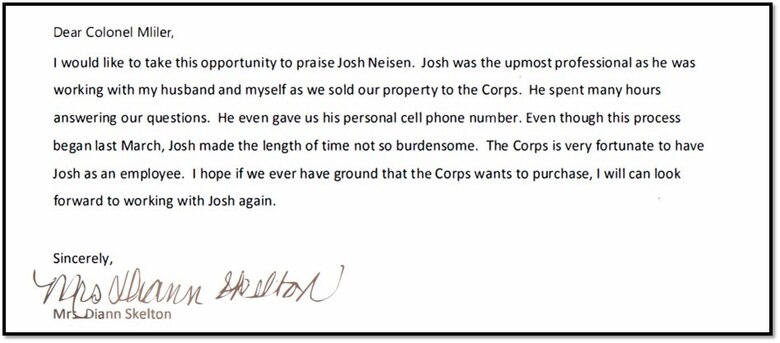 Dear Colonel Mliler,
I would like to take this opportunity to praise Josh Neisen.  Josh was the upmost professional as he was
working with my husband and myself as we sold our property to the Corps.  He spent many hours
answering our questions.  He even gave us his personal cell phone number. Even though this process
began last March, Josh made the length of time not so burdensome.  The Corps is very fortunate to have
Josh as an employee.  I hope if we ever have ground that the Corps wants to purchase, I will can look
forward to working with Josh again.
Sincerely,
Mrs Diann Skelton
Mrs. Diann Skelton